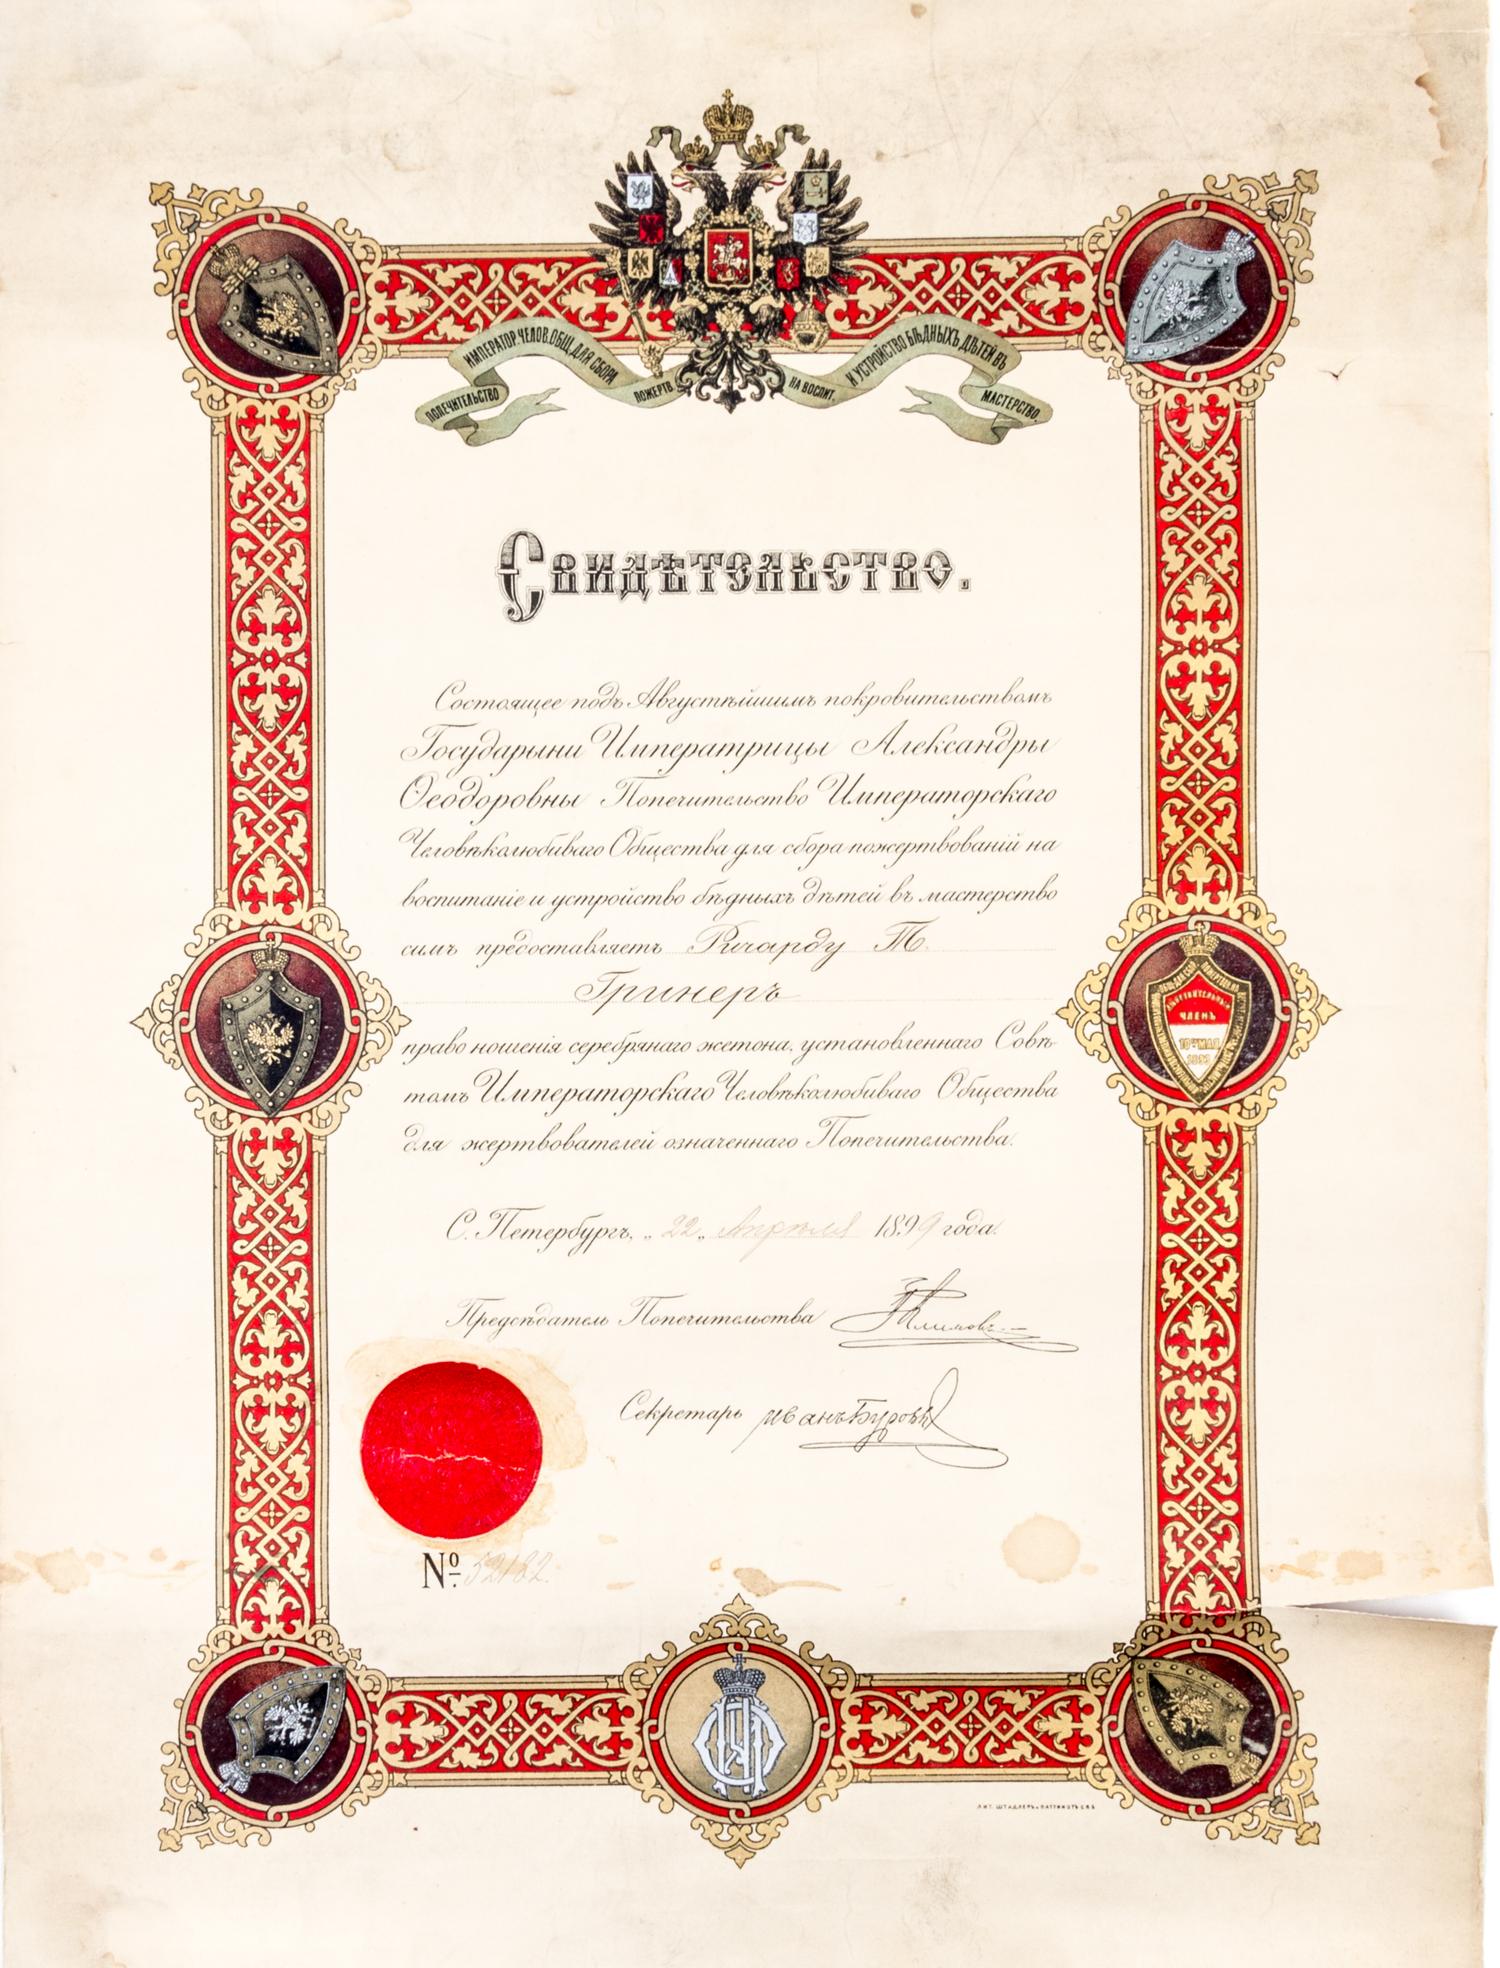 ПОПЕЧИТЕЛЬСТВО ИМПЕРАТОР. ЧЕЛОВ. ОБЩ. ДЛЯ СБОРА ПОЖЕРТВ. НА ВОСПИТ. И УСТРОЙСТВО БѢДНЫХЪ ДѢТЕЙ ВЪ МАСТЕРСТВО
Свидѣтельство.
Состоящее подъ Августѣйшимъ покровительствомъ
Государыни Императрицы Александры
Ѳеодоровны Попечительство Императорскаго
Человѣколюбиваго Общества для сбора пожертвованій на
воспитаніе и устройство бѣдныхъ дѣтей въ мастерство
симъ предоставляетъ Ричарду Т.
Гринеръ
право ношенія серебрянаго жетона, установленнаго Совѣ-
томъ Императорскаго Человѣколюбиваго Общества
для жертвователей означеннаго Попечительства.
ДѢЙСТВИТЕЛЬНЫЙ
ЧЛЕНЪ
10ГО МАЯ
1893
С. Петербургъ, „22„ Апрѣля 1899 года.
Предсѣдатель Попечительства
Секретарь Иванъ Буровъ
№ 52182.
ЛИТ. ШТАДЛЕРЪ и ПАТТИНОТЪ С.П.Б.